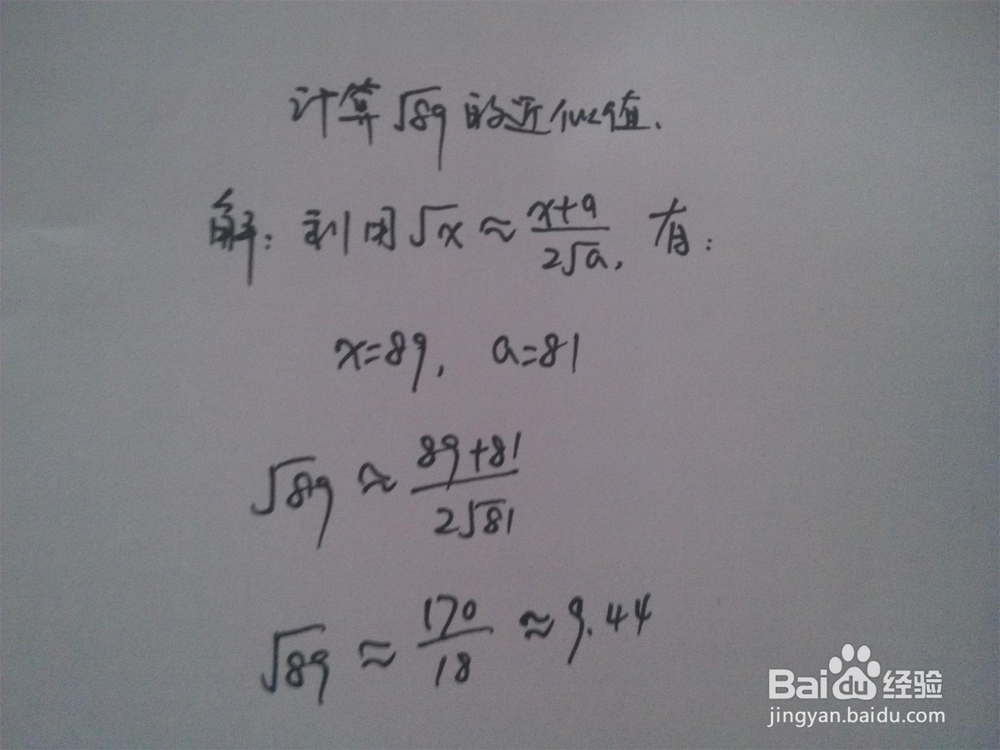 计算√89的近似值.
解：利用√x≈(x+a)/(2√a), 有：
x=89, a=81
√89≈(89+81)/(2√81)
√89≈170/18≈9.44
Baidu经验
jingyan.baidu.com